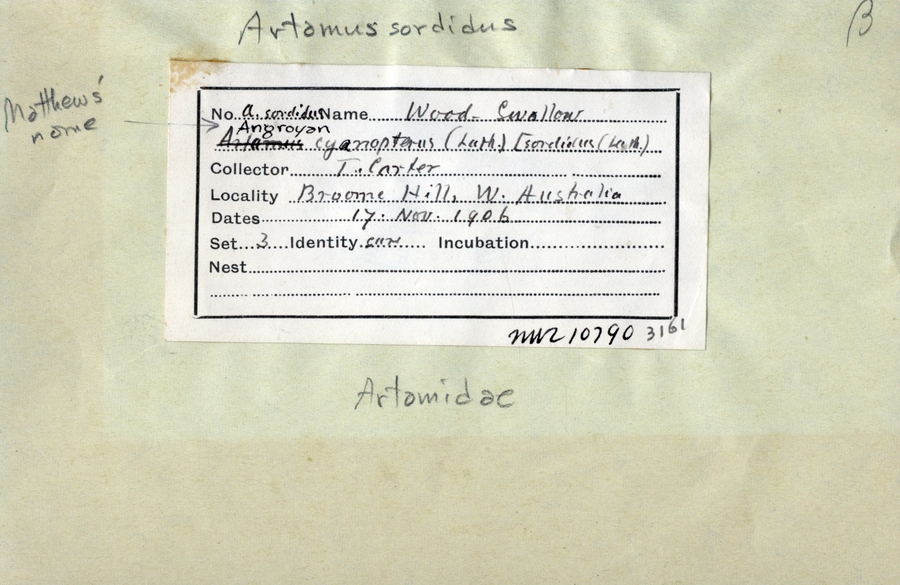 Artamus sordidus
B
Matthews'
name
No. a. sordidus Name Wood-Swallow
Angroyan
Artamus cyanopterus (Lath.) [sordidus (Lath.)
Collector T. Carter
Locality Broome Hill, W. Australia
Dates 17. Nov. 1906
Set 3 Identity sure Incubation
Nest
10790 3161
Artamidae